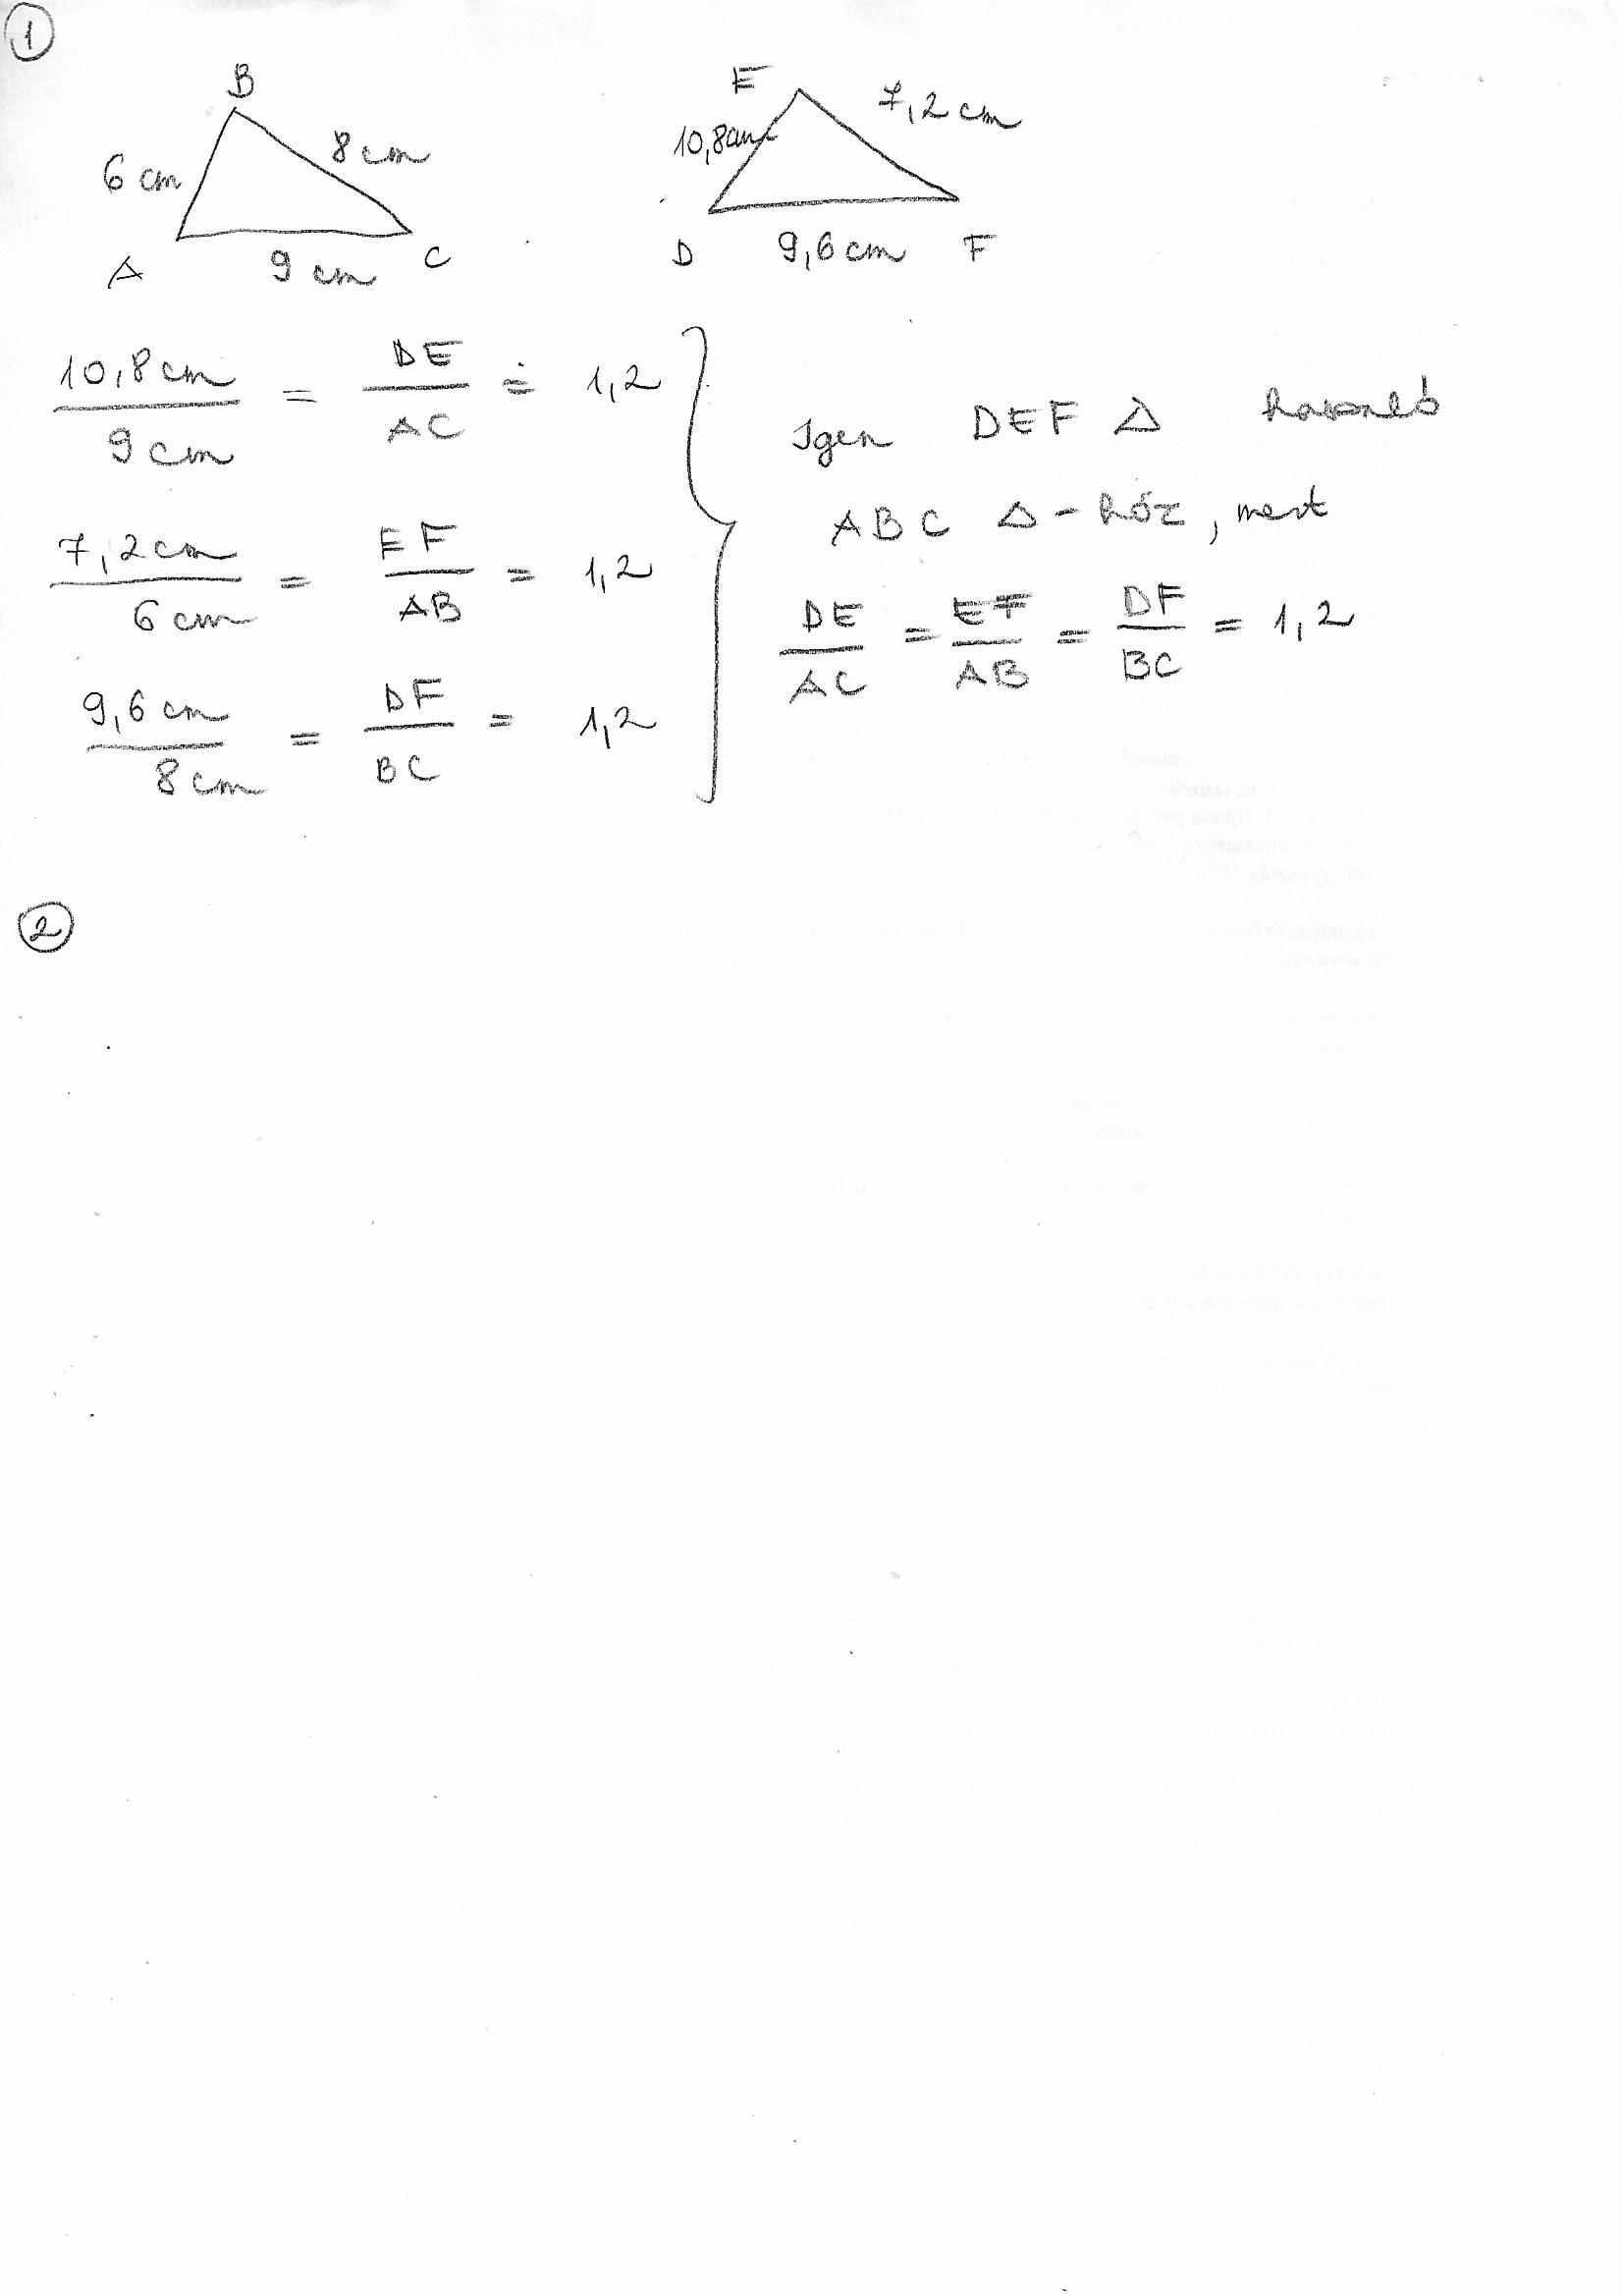 1
B
E
7,2 cm
10,8cm
8 cm
6 cm
A
9 cm
C
D
9,6 cm
F
10,8 cm / 9 cm = DE / AC = 1,2
7,2 cm / 6 cm = EF / AB = 1,2
9,6 cm / 8 cm = DF / BC = 1,2
Igen DEF Δ hasonló
ABC Δ-höz, mert
DE / AC = EF / AB = DF / BC = 1,2
2